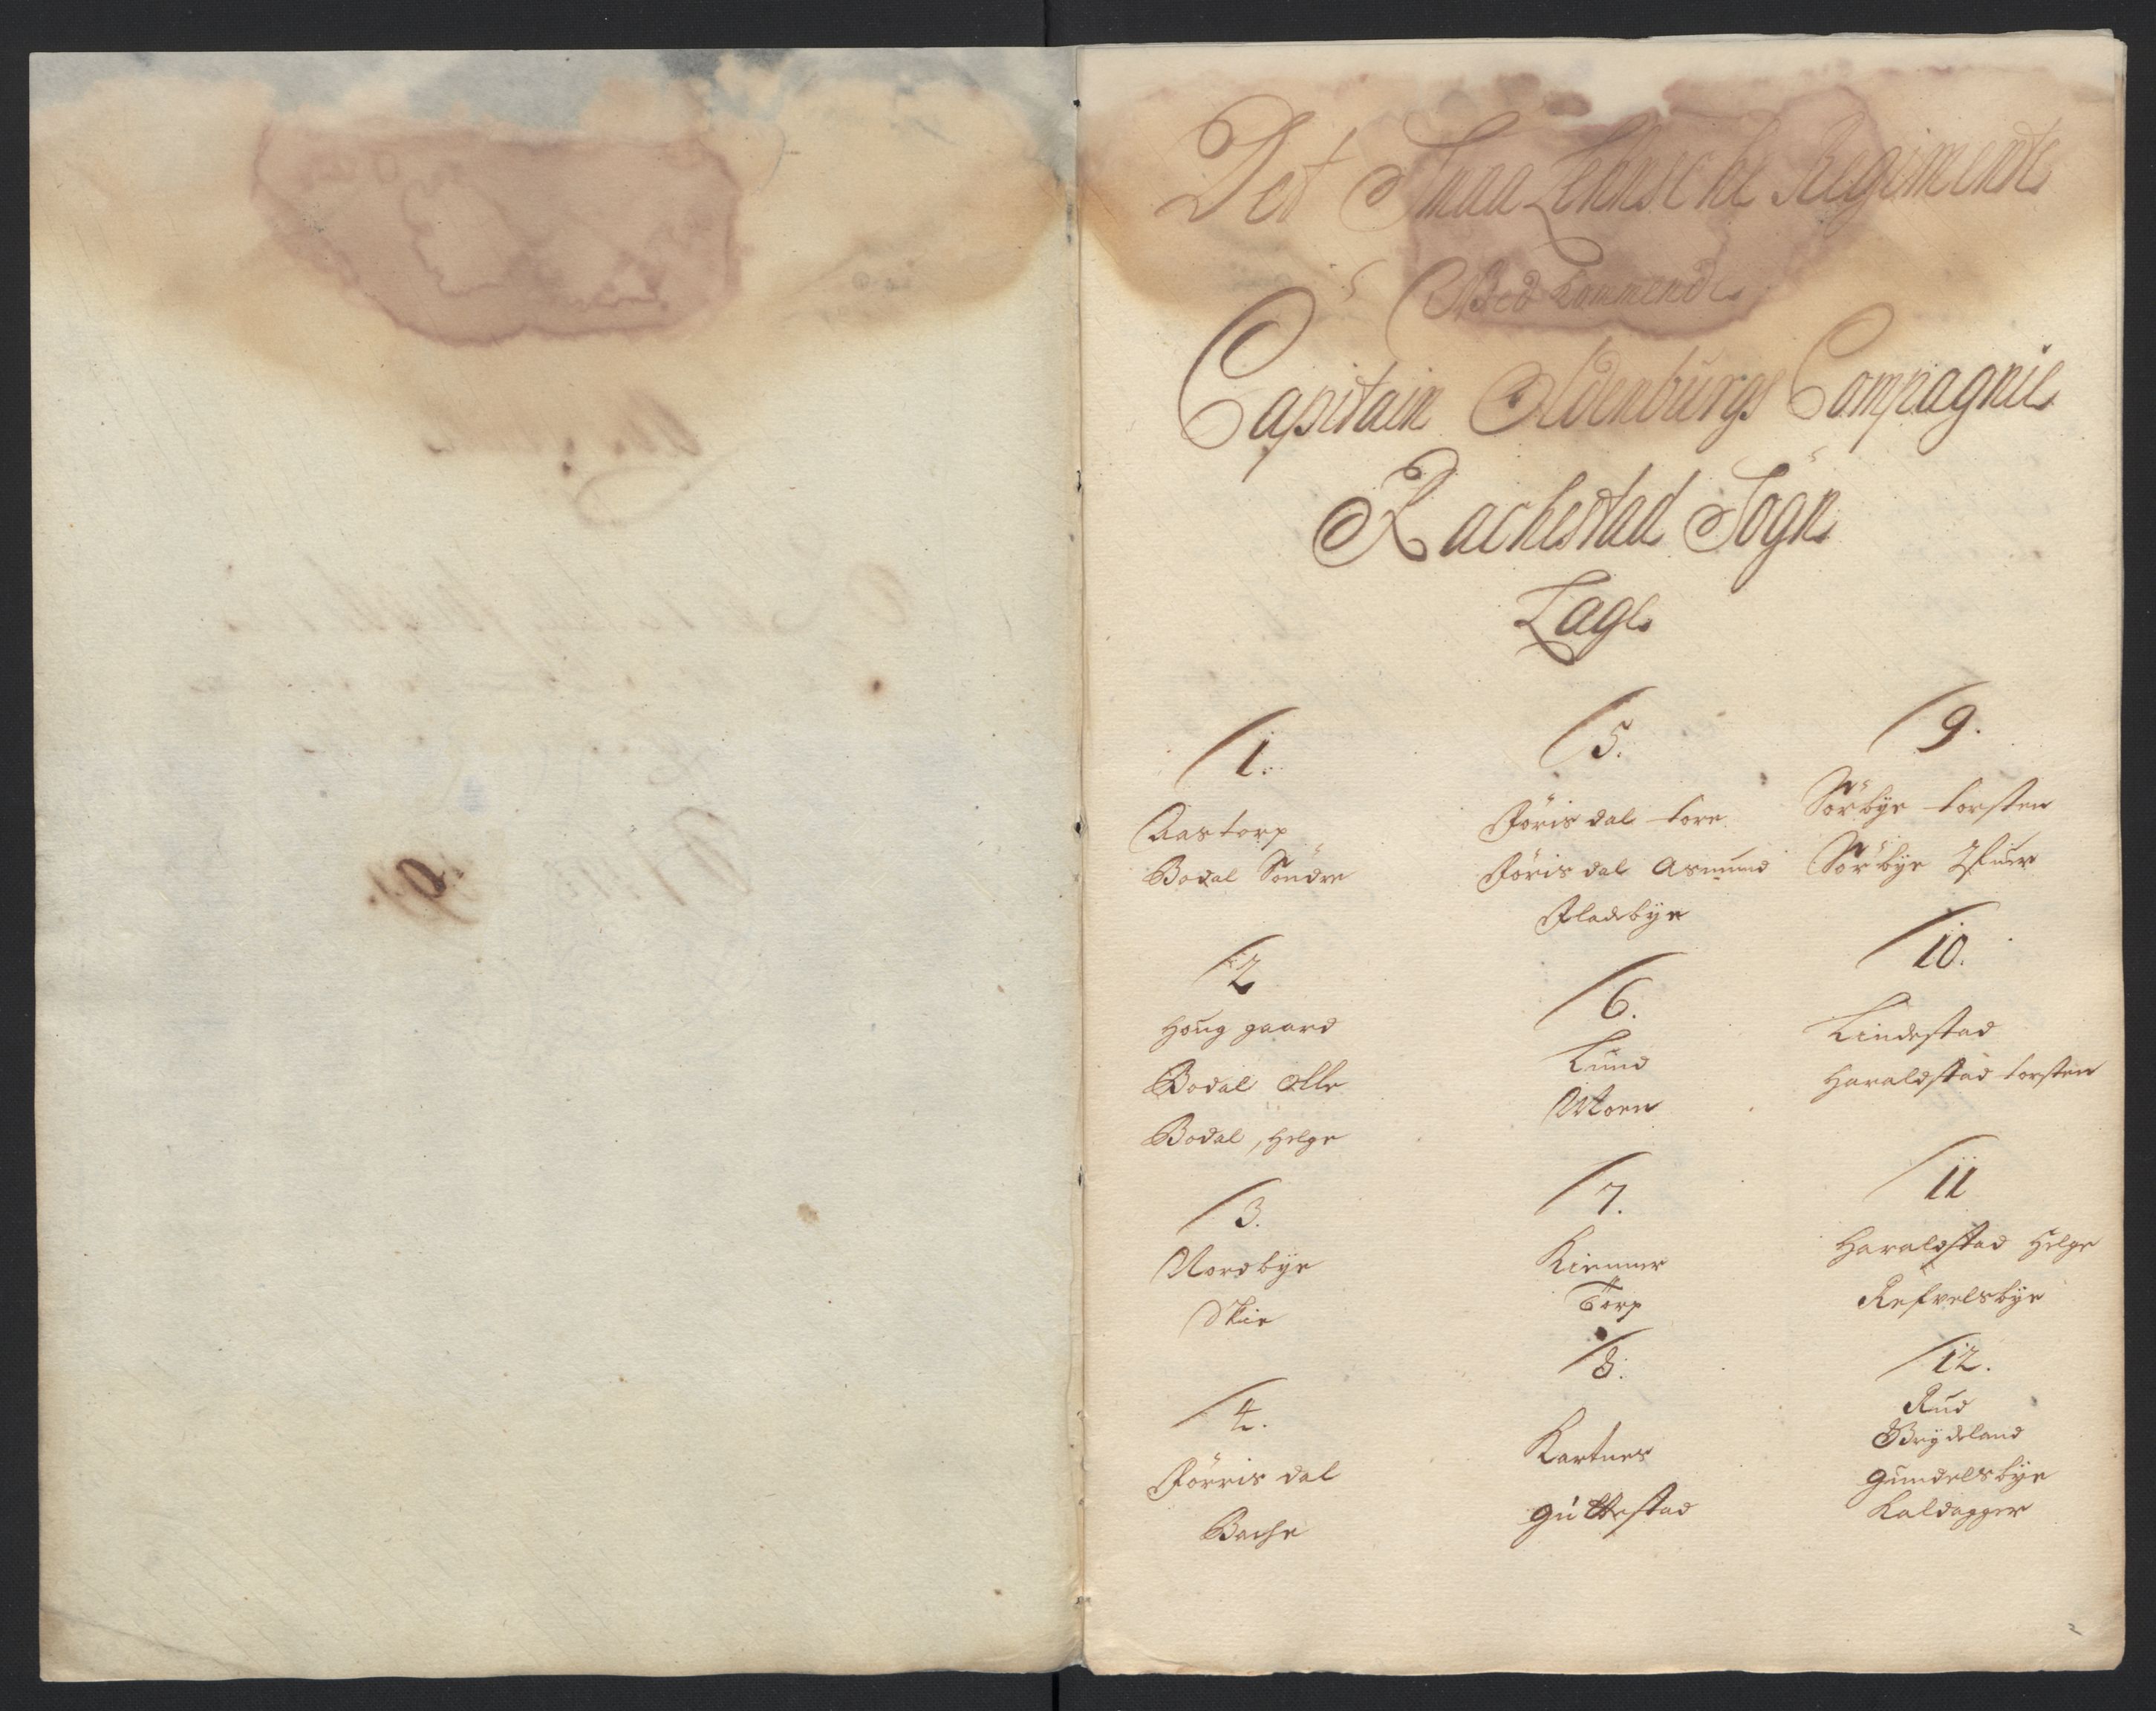 Det Smaa Lehnsche Regimente
Ved kommende
Capitain Oldenburgs Compagnie
Rachestad Sogn
Lage
1.
Aastorp
Bodal Söndre
2
Houg gaard
Bodal Olle
Bodal, Helge
3.
Nordbye
Skie
4.
Jörris dal
Bache
5.
Jöris dal tore
Jöris dal Asmund
Fladebye
6.
Lund
Moen
7.
Kinner
Torp
8.
Kartnes
Guttestad
9.
Sörbye torsten
Sörbye Ifuer
10.
Lindestad
Haraldstad torsten
11
Haraldstad Helge
Refvelsbye
12.
Rud
Brydeland
Gundelsbye
Kaldagger